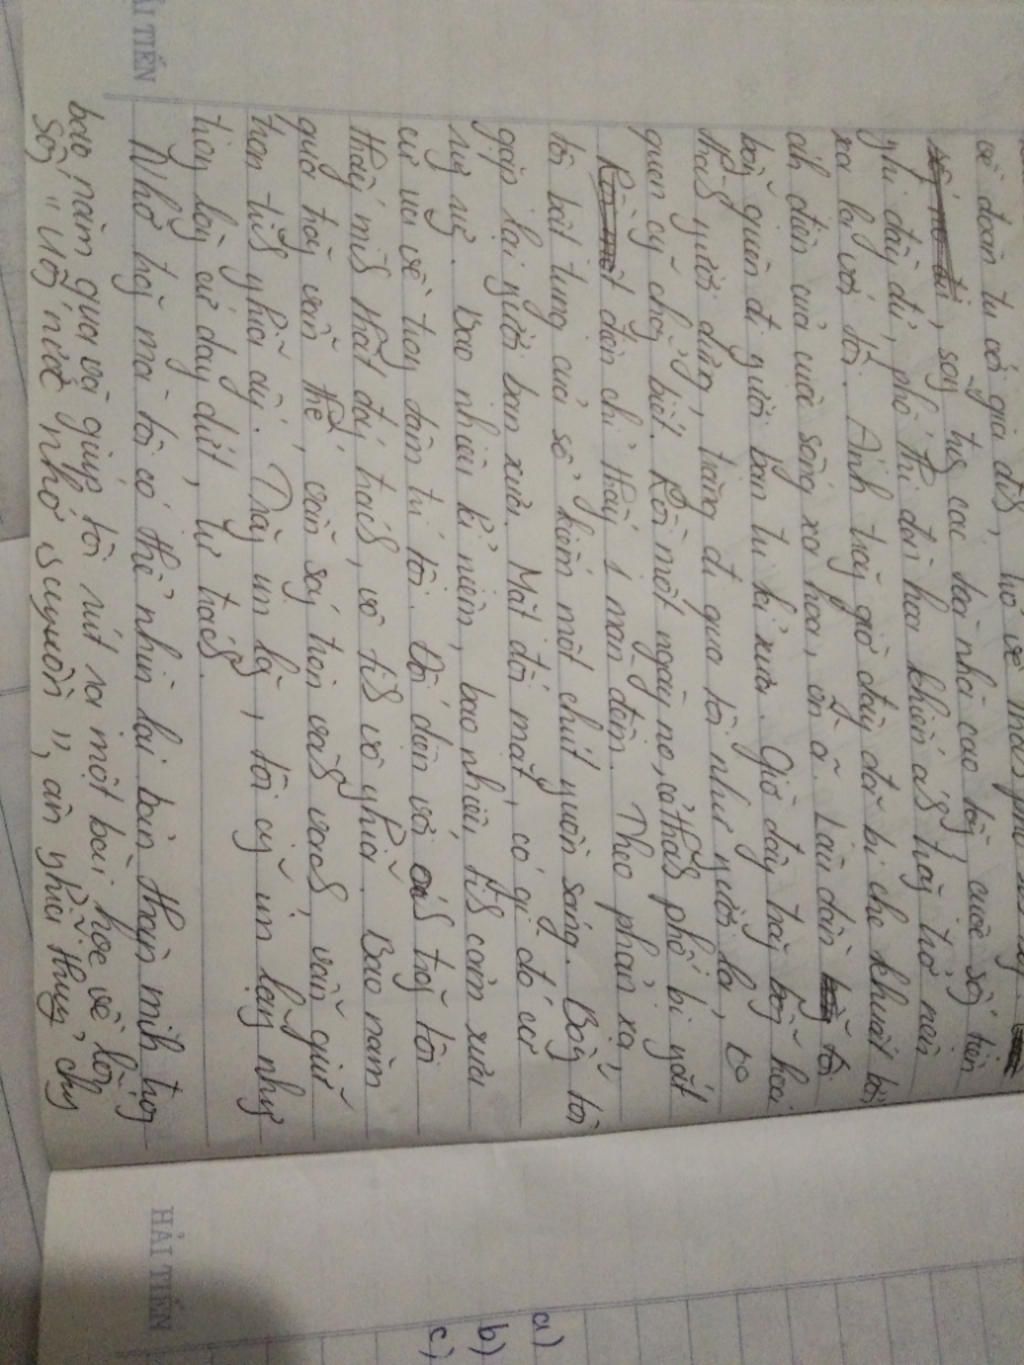 về đoàn tụ với gia đìh, trở về thàh phố
, sog tng các tòa nhà cao tầg, cuộc sốg tiện
nghi đầy đủ, phố thị đèn hoa khiến áh trăg trở nên
xa lạ với tôi. Áh trăg giờ đây đã bị che khuất bởi
áh đèn của cuộc sốg xa hoa, ồn ã. Lâu dần tôi
bỗg quên đi người bạn tri kỉ xưa. Giờ đây trăg bỗg hoá
thàh người dưg, trăg đi qua tôi như người lạ, ko
quen cg̃ chẳg biết. Rồi một ngày nọ, cả thàh phố bị ngắt
điện chỉ thấy 1 màn đêm. Theo phản xạ,
tôi bật tung cửa sổ kiếm một chút nguồn sáng. Bỗg tôi
gặp lại người bạn xưa. Mặt đối mặt, có gì đó cứ
rưg rưg. Bao nhiêu kỉ niệm, bao nhiêu tìh cảm xưa
cứ ùa về trog tâm trí tôi. Đối diện với áh trăg tôi
thấy mìh thật đág trách, vô tìh vô nghĩa. Bao năm
qua trăg vẫn thế, vẫn ság tròn vàh vạch, vẫn giữ
trọn tìh nghĩa ấy. Trăg im lặg, tôi cg̃ im lặg nhưg
trog lòg cứ day dứt, tự trách.
Nhờ trăg mà tôi có thể nhìn lại bản thân mìh trog
bao năm qua và giúp tôi rút ra một bài học về lối
sốg "Uốg nước nhớ nguồn", ân nghĩa thuỷ chug
HẢI TIẾN
a)
b)
c)